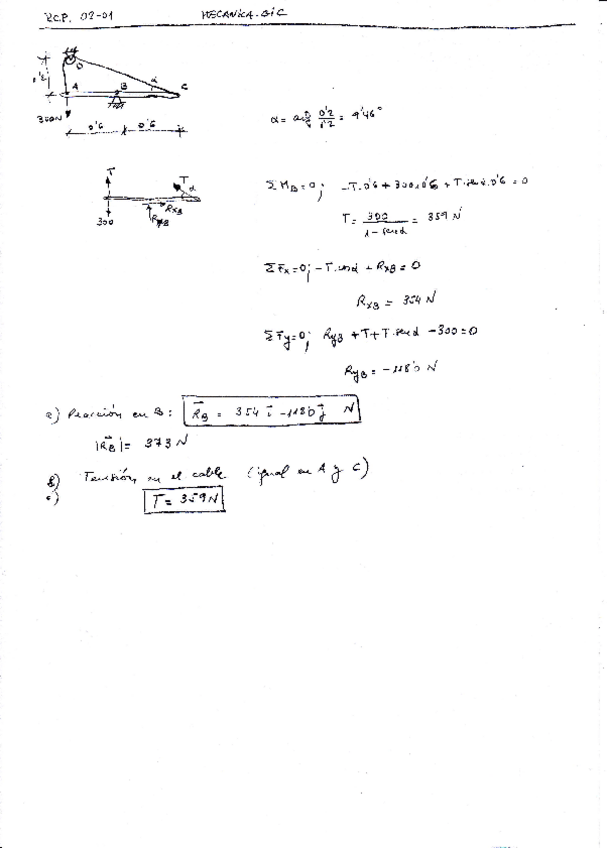 R.C.P. 03-01 MECANICA-GIC
D
0'2
A B α C
300N
0'6 0'6
α = arctg 0'2 / 1'2 = 9'46°
T T α
R_XB
300 R_yB
ΣM_B=0; -T·0'6 + 300·0'6 + T·senα·0'6 = 0
T = 300 / 1-senα = 359 N
ΣFx=0; -T·cosα + R_XB = 0
R_XB = 354 N
ΣFy=0; R_yB + T + T·senα - 300 = 0
R_yB = -118'0 N
a) Reacción en B: R_B = 354 i - 118'0 j N
|R_B| = 373 N
b) Tensión en el cable (igual en A y C)
c) T = 359 N